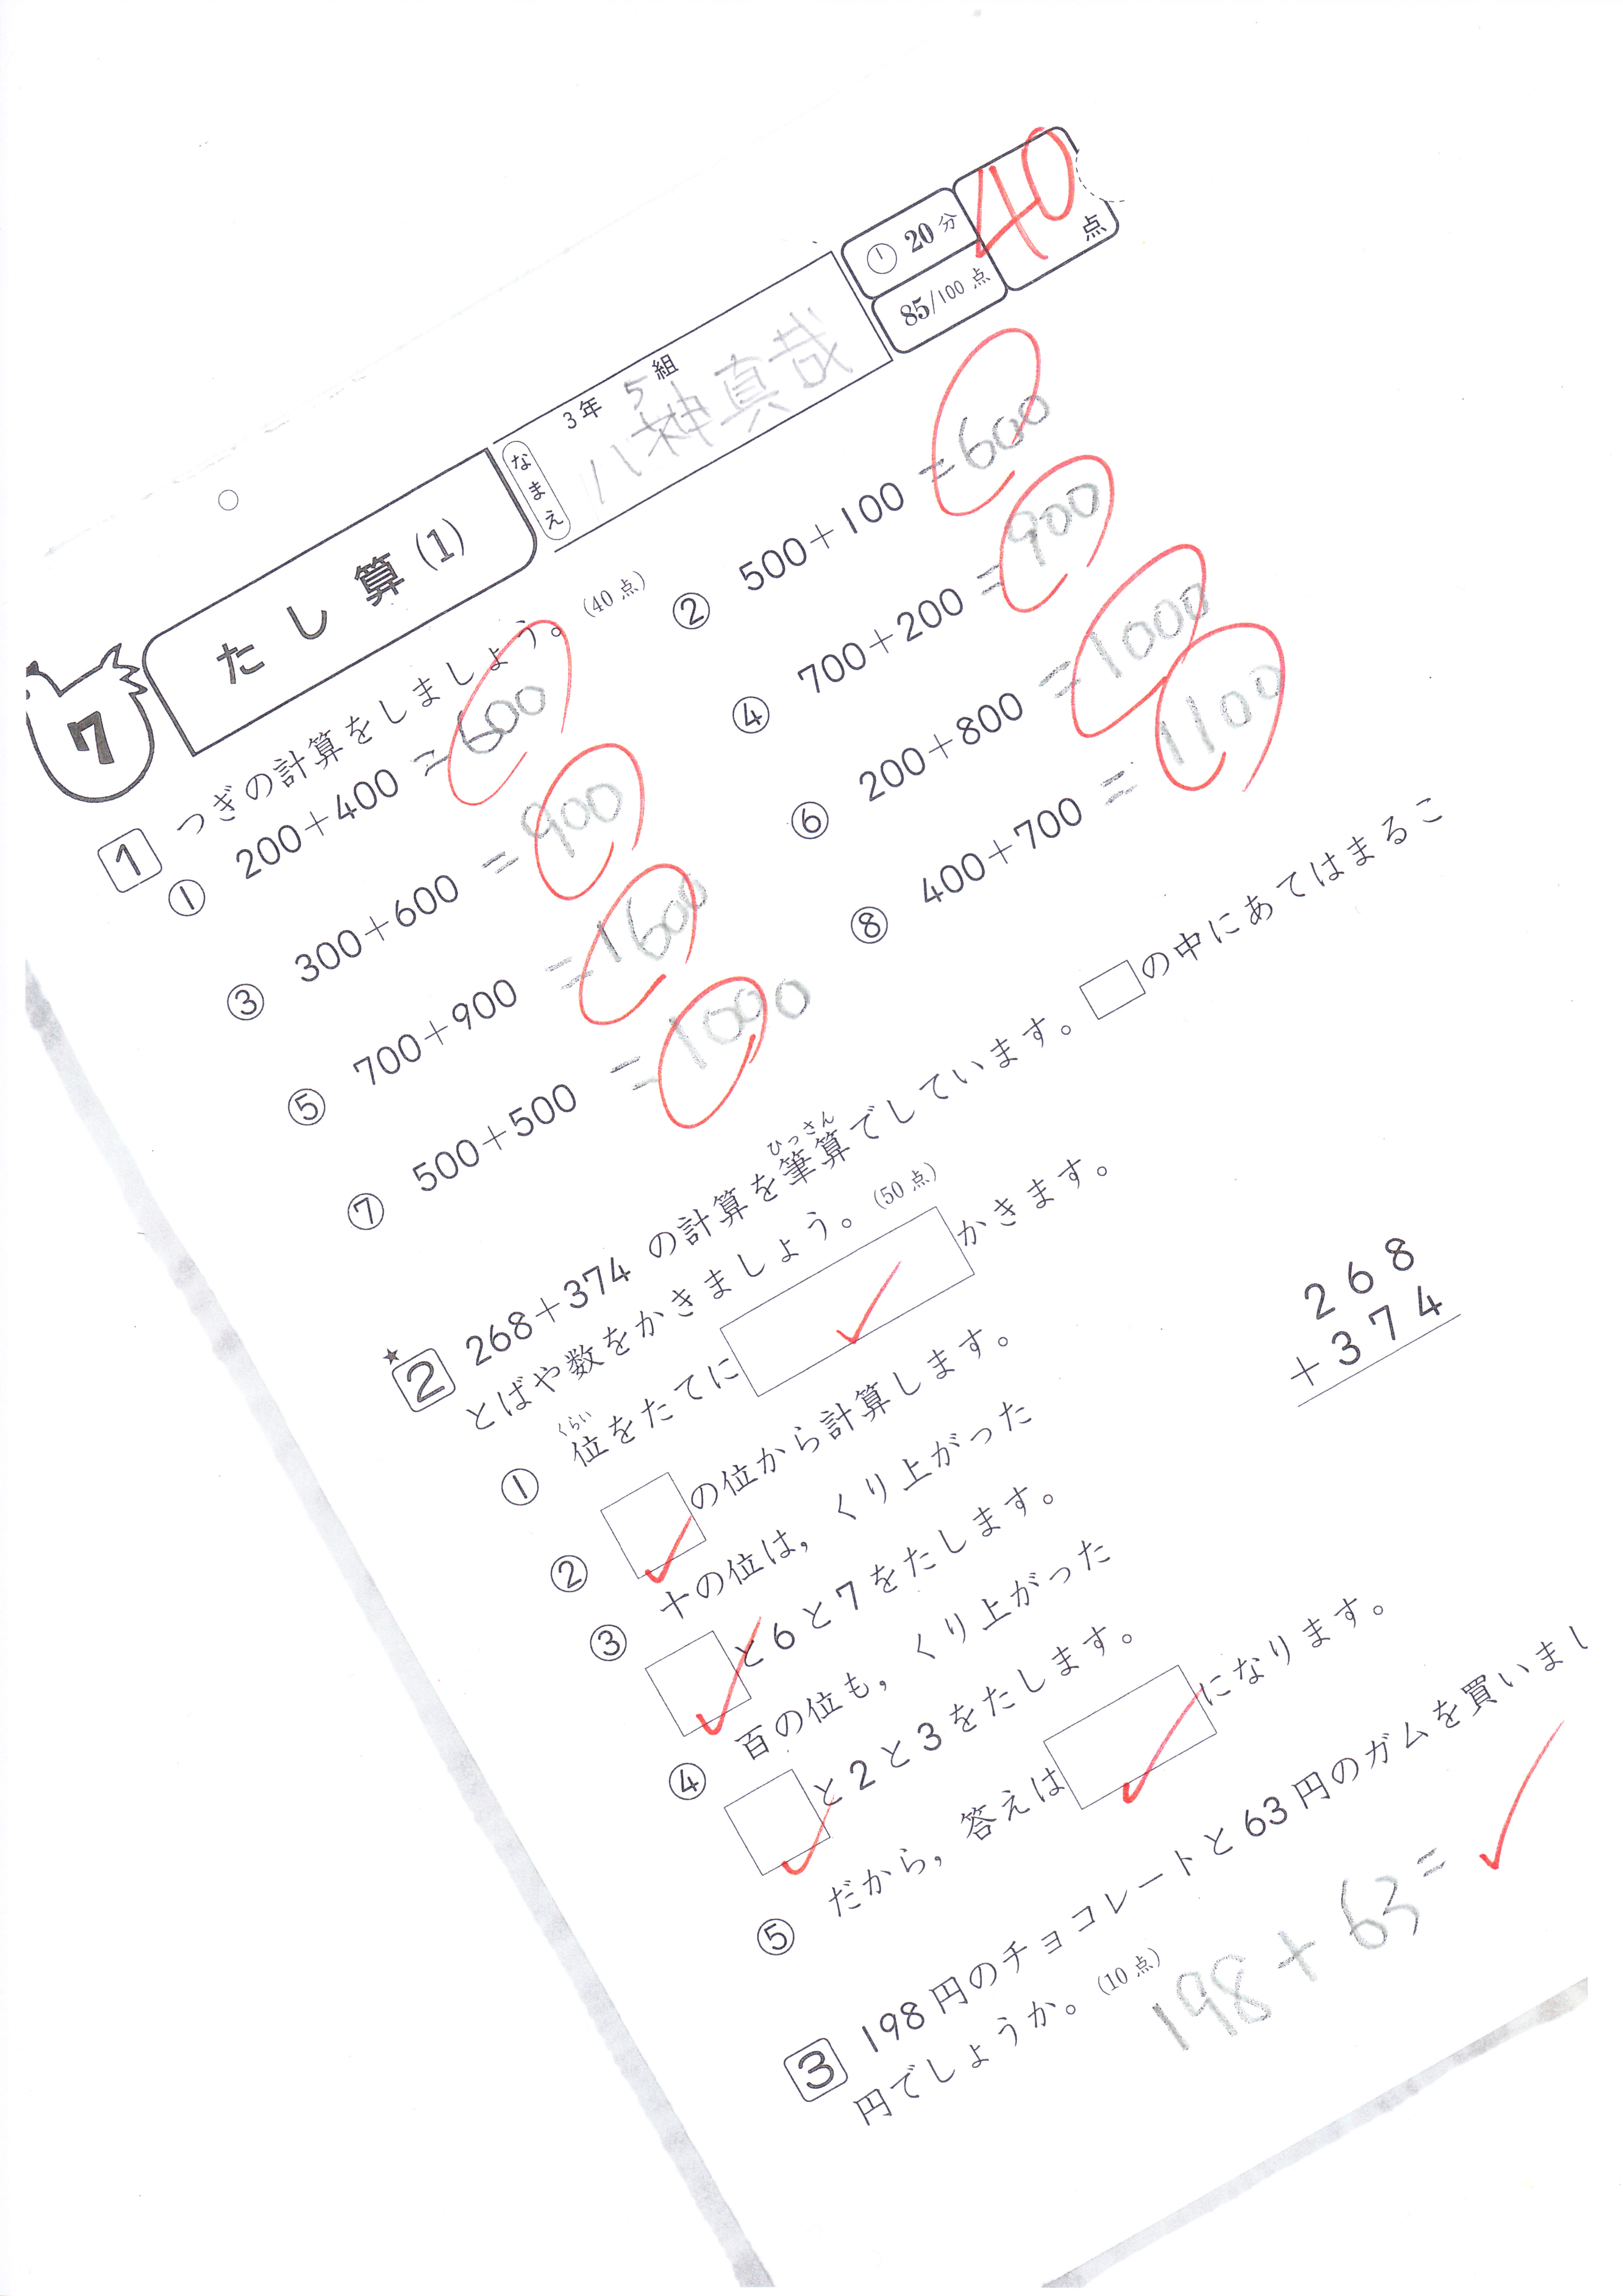 7
たし算(1)
なまえ
3年 5組
20分
85/100点
40点
1 つぎの計算をしましょう。(40点)
① 200+400 =600
② 500+100 =600
③ 300+600 =900
④ 700+200 =900
⑤ 700+900 =1600
⑥ 200+800 =1000
⑦ 500+500 =1000
⑧ 400+700 =1100
★2 268+374 の計算を筆算でしています。□の中にあてはまるこ
ひっさん
とばや数をかきましょう。(50点)
① 位をたてに かきます。
くらい
② の位から計算します。
③ 十の位は,くり上がった
と6と7をたします。
④ 百の位も,くり上がった
と2と3をたします。
⑤ だから,答えは になります。
268
+374
3 198円のチョコレートと63円のガムを買いまし
円でしょうか。(10点)
198+63=